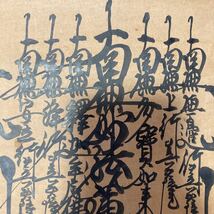 南無無邊行菩薩
南無上行菩薩
南無多寶如来
南無妙法蓮
南無釋迦牟尼
南無浄行菩薩
南無安立行菩薩